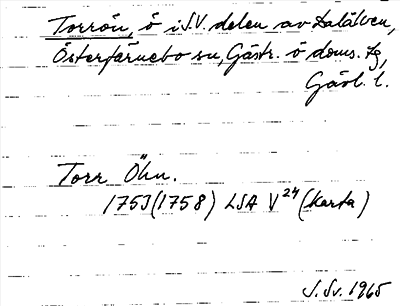 Torrön, ö i S.V. delen av Dalälven,
Österfärnebo sn, Gästr. ö doms. tg,
Gävl. l.
Torr Öhn.
1753(1758) LSA V24 (karta)
J. Sv. 1965